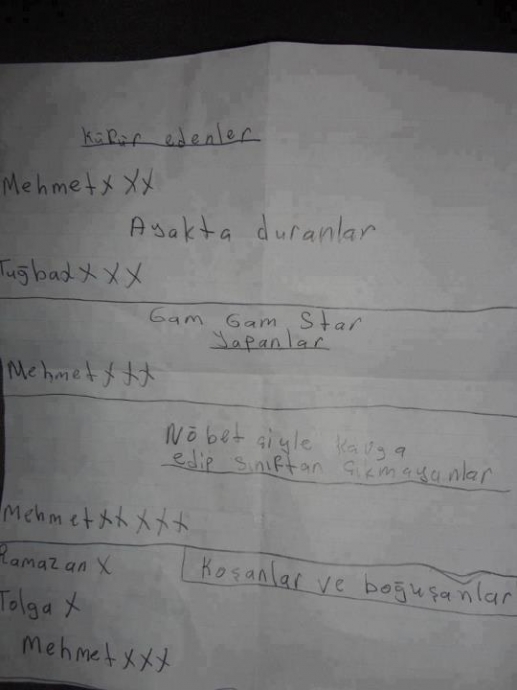 Küfür edenler
Mehmet x x x
Ayakta duranlar
Tuğba x x x x
Gam Gam Star
yapanlar
Mehmet x x x
Nöbetçiyle kavga
edip sınıftan çıkmayanlar
Mehmet x x x x x
Ramazan x
Koşanlar ve boğuşanlar
Tolga x
Mehmet x x x